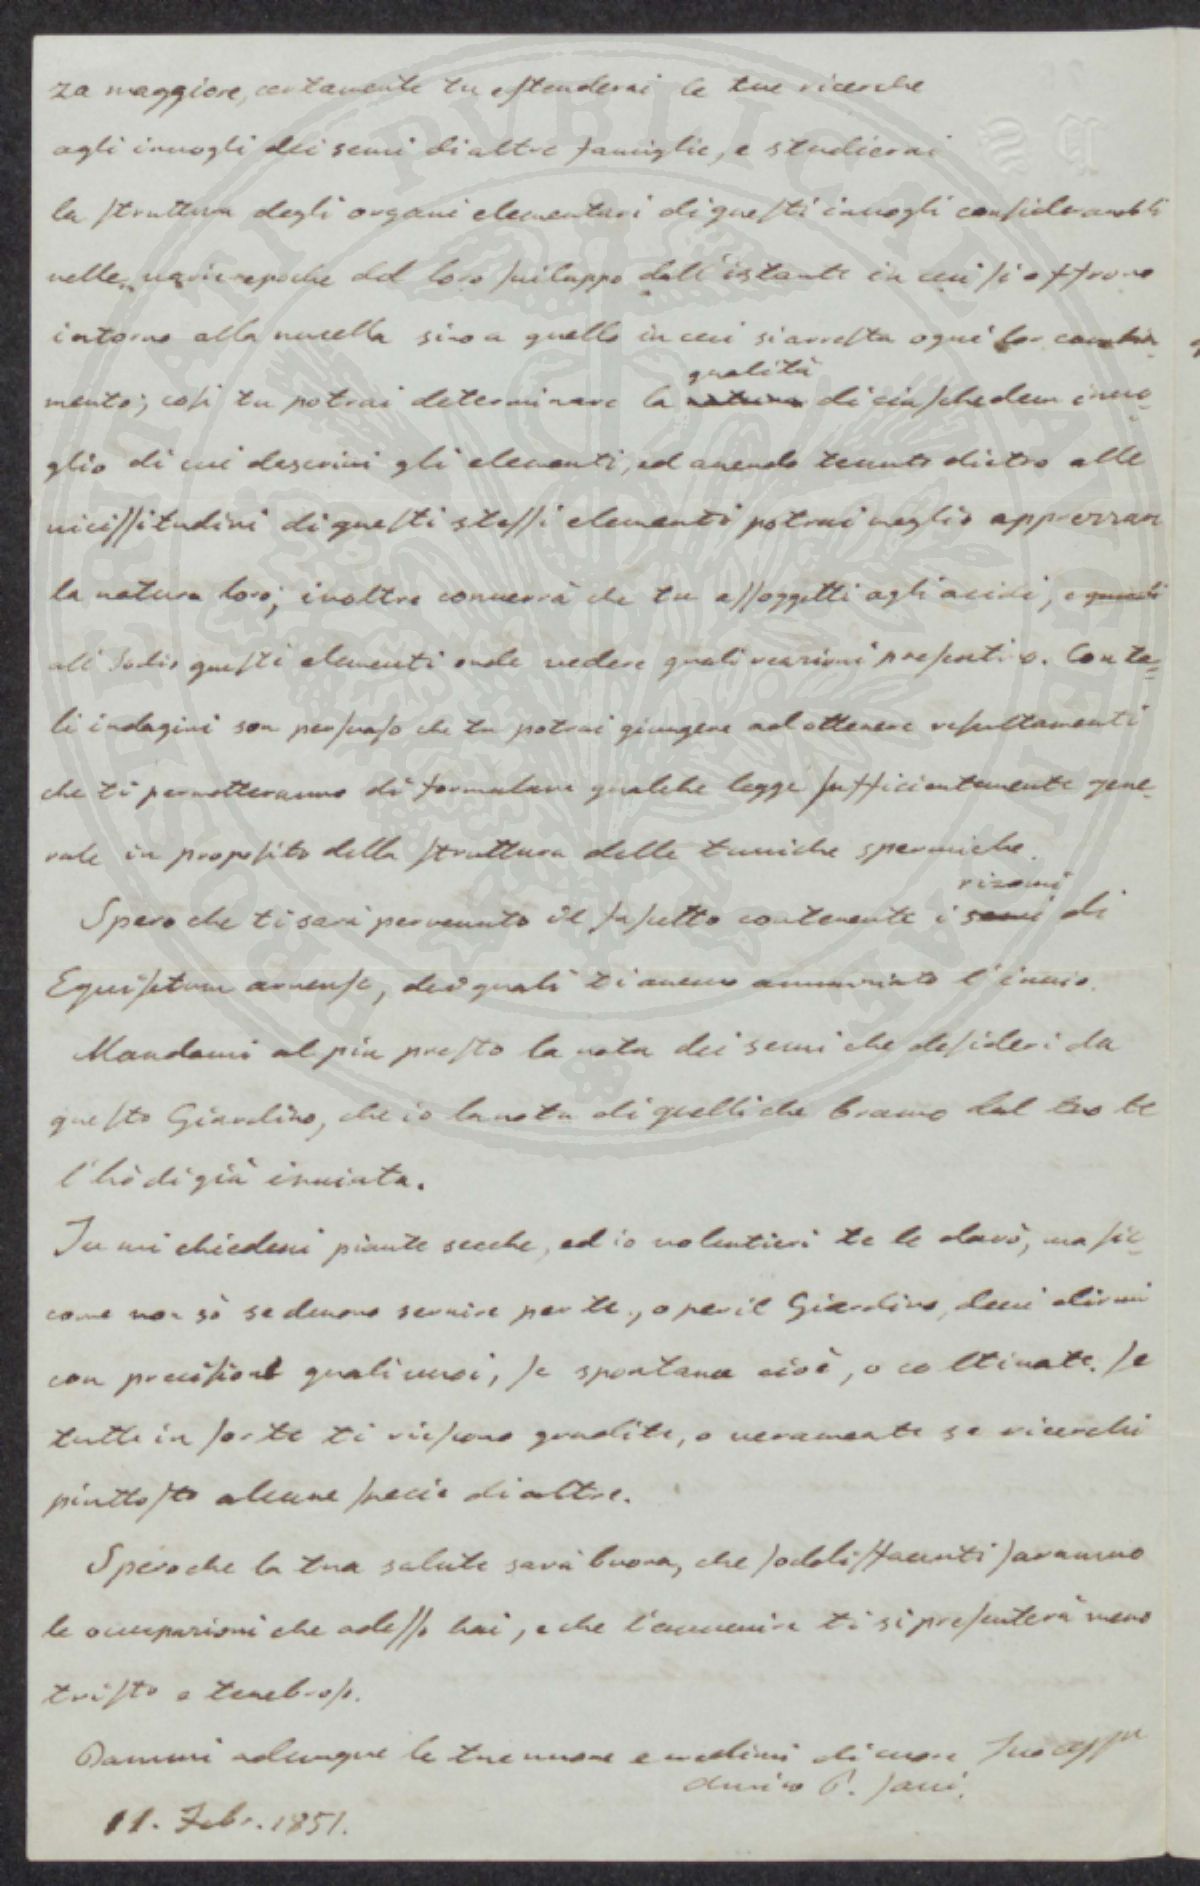 za maggiore, certamente tu estenderai le tue ricerche
agli invogli dei semi di altre famiglie, e studierai
la struttura degli organi elementari di questi invogli considerandoli
nelle varie epoche del loro sviluppo dall'istante in cui si offrono
intorno alla nucella sino a quello in cui si arresta ogni lor cambia-
qualità
mento; così tu potrai determinare la natura di ciaschedun invo-
glio di cui descrivi gli elementi, ed avendo tenuto dietro alle
vicissitudini di questi stessi elementi potrai meglio apprezzare
la natura loro; inoltre converrà che tu assoggetti agli acidi, e quindi
all'Iodio questi elementi onde vedere quali reazioni presentino. Con ta-
li indagini son persuaso che tu potrai giungere ad ottenere resultamenti
che ti permetteranno di formulare qualche legge sufficientemente gene-
rale in proposito della struttura delle tuniche spermiche.
rizomi
Spero che ti sarà pervenuto il sacchetto contenente i semi di
Equisetum arvense, dei quali ti avevo annunziato l'invio.
Mandami al più presto la nota dei semi che desideri da
questo Giardino, che io la nota di quelli che bramo dal tuo te
l'hò di già inviata.
Tu mi chiedevi piante secche, ed io volentieri te le darò, ma sic-
come non sò se devono servire per te, o per il Giardino, devi dirmi
con precisione quali vuoi, se spontanee cioè, o coltivate; se
tutte in sorte ti riescono gradite, o veramente se ricerchi
piuttosto alcune specie di altre.
Spero che la tua salute sarà buona, che sodisfacenti saranno
le occupazioni che adesso hai, e che l'avvenire ti si presenterà meno
tristo e tenebroso.
Dammi adunque le tue nuove e credimi di cuore Tuo aff.mo
amico P. Savi.
11. Febr. 1851.